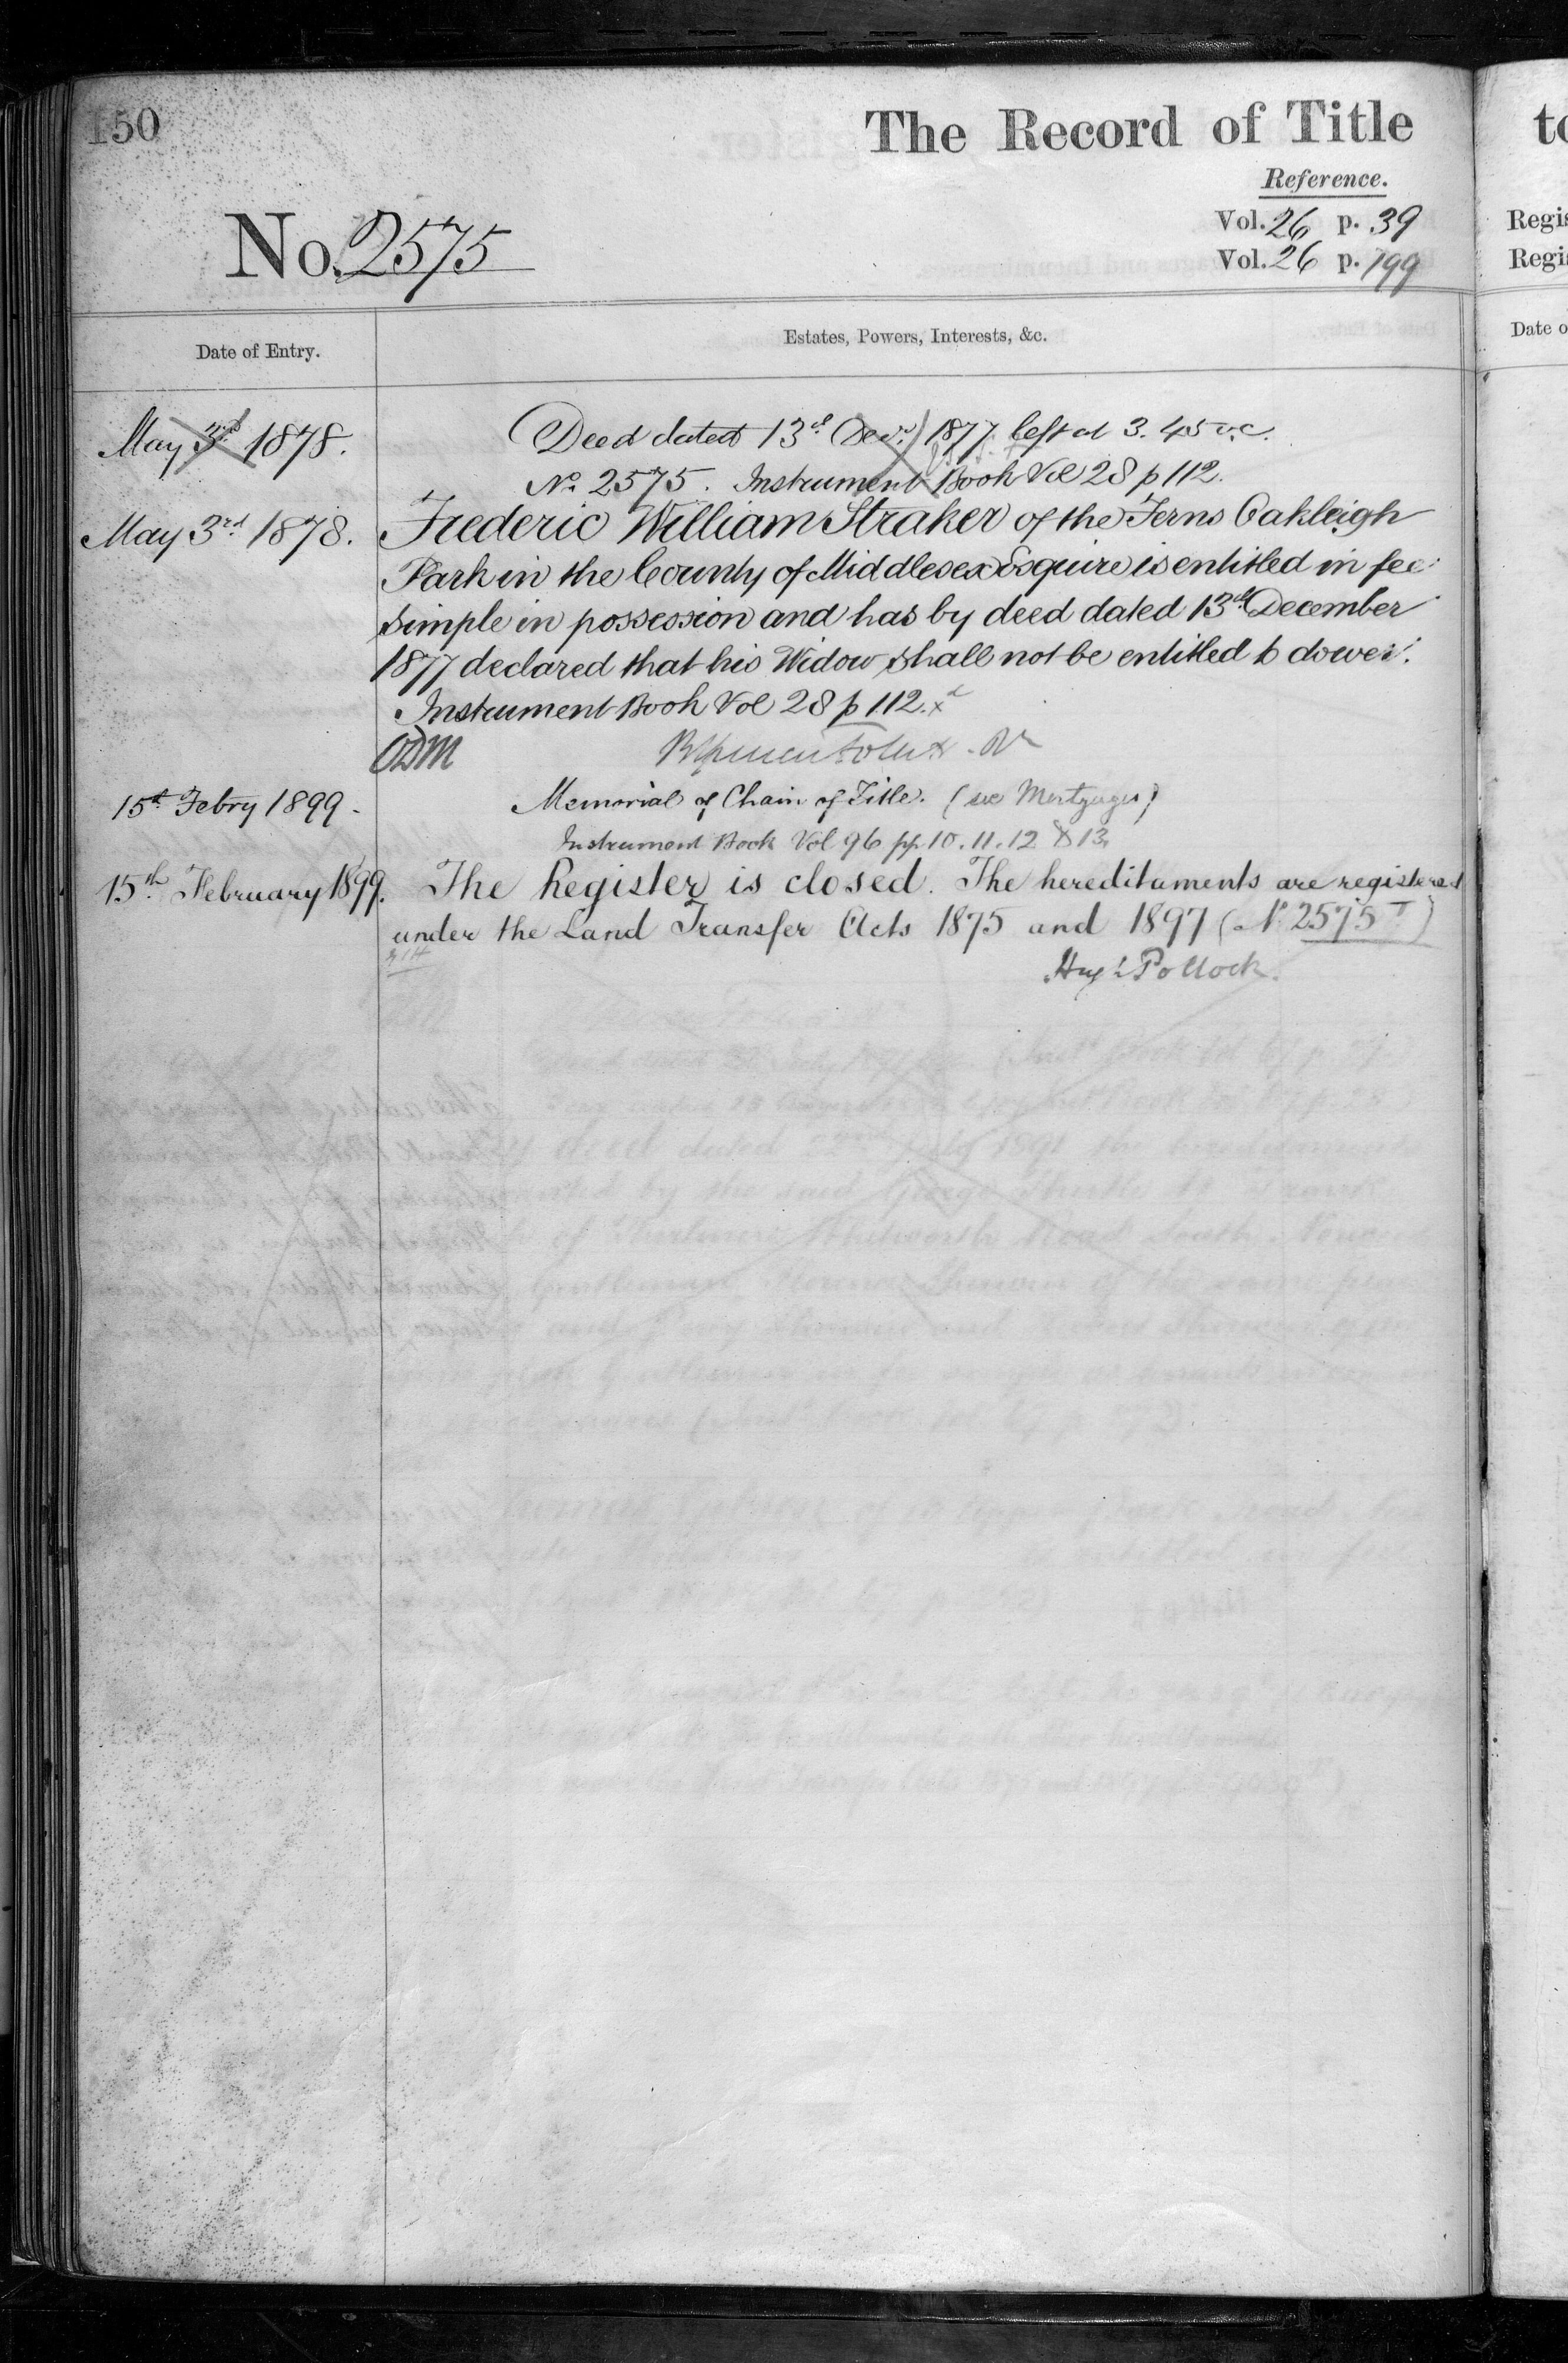 150
The Record of Title
Reference.
No. 2575
Vol. 26 p. 39
Vol. 26 p. 199
Date of Entry.
Estates, Powers, Interests, &c.
May 3rd 1878.
Deed dated 13th Decr. 1877 left at 3.45
No. 2575. Instrument Book Vol 28 p 112.
May 3rd 1878.
Frederic William Straker of the Ferns Oakleigh
Park in the County of Middlesex Esquire is entitled in fee
simple in possession and has by deed dated 13th December
1877 declared that his Widow shall not be entitled to dower.
Instrument Book Vol 28 p 112.
15th Febry 1899.
Memorial of Chain of Title. (see Mortgages)
Instrument Book Vol 96 pp. 10. 11. 12 & 13.
15th February 1899.
The Register is closed. The hereditaments are registered
under the Land Transfer Acts 1875 and 1897 (No. 2575 T)
Hugh Pollock.
to
Regis
Regi
Date o